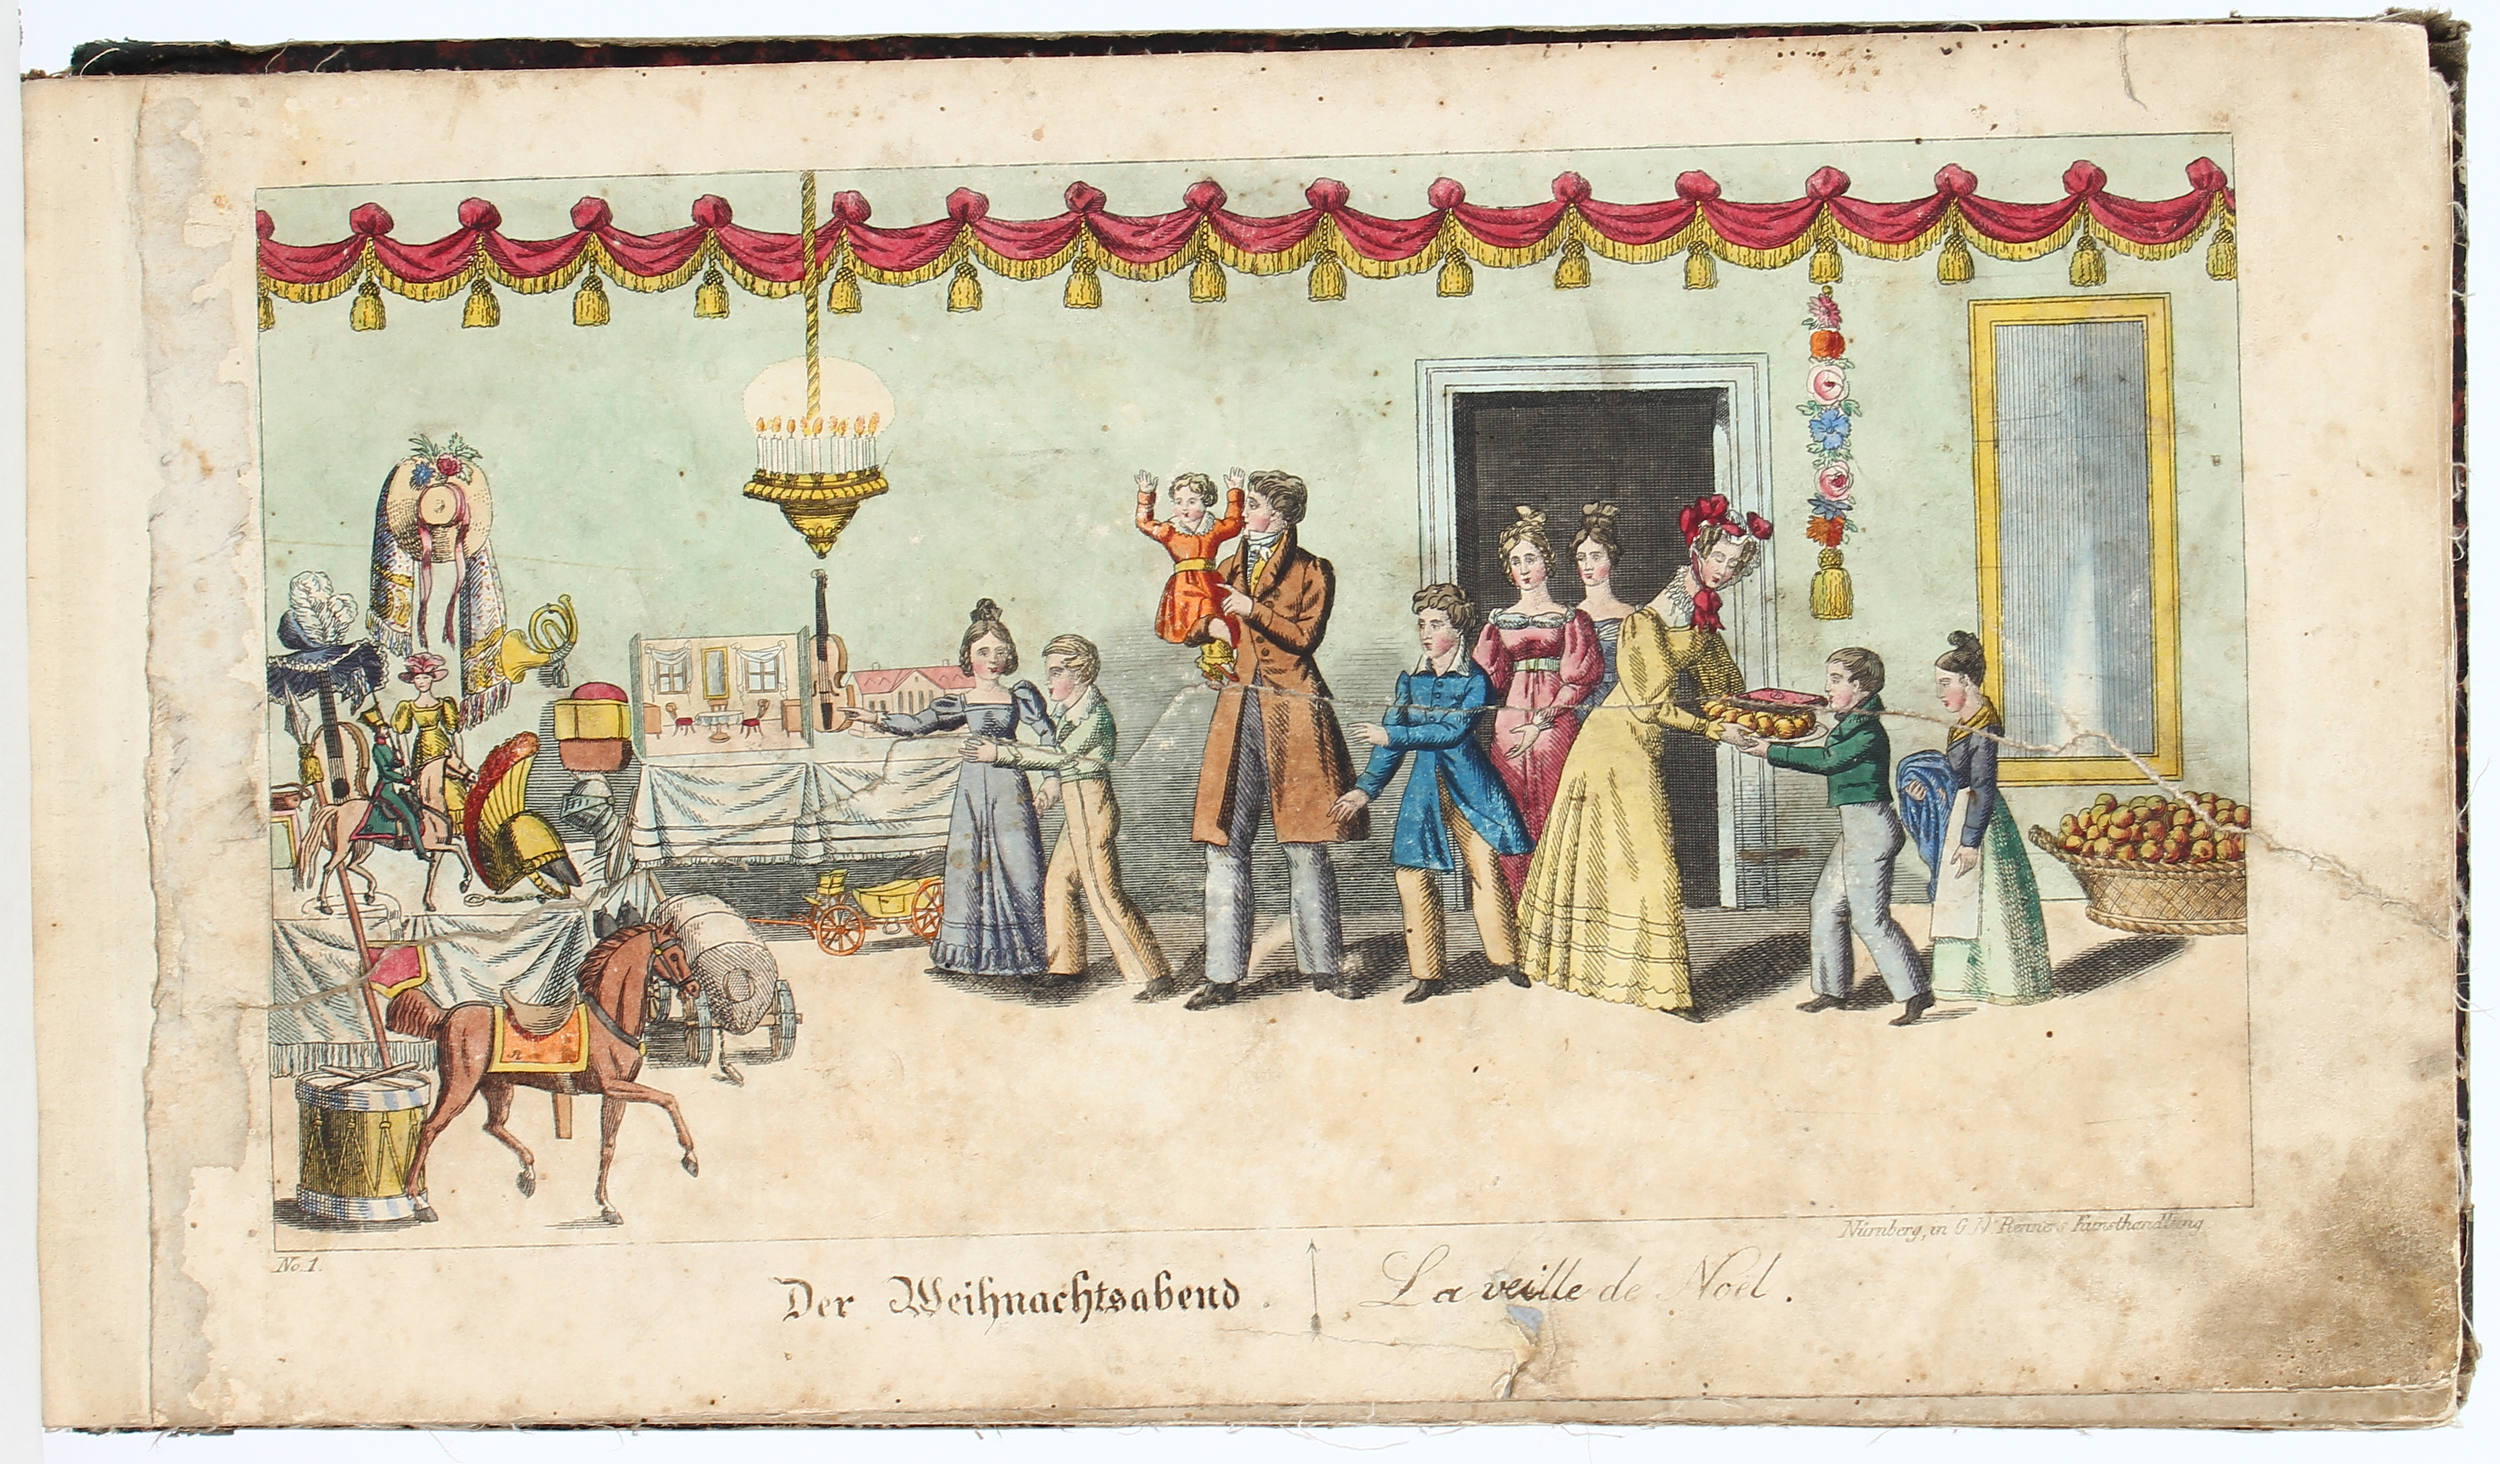 Nürnberg, in G. N. Renner's Kunsthandlung
No. 1.
Der Weihnachtsabend. La veille de Noël.